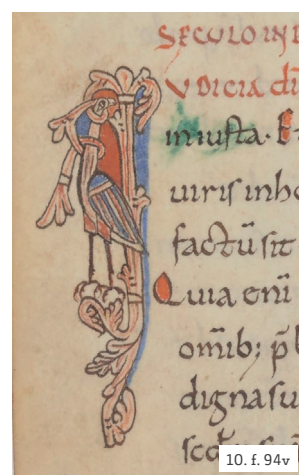 SECULO IN I
VDICIA dñ
iniusta. Et
uiris inho
factū sit
Quia eni
omīb; p̄
digna su
10. f. 94v